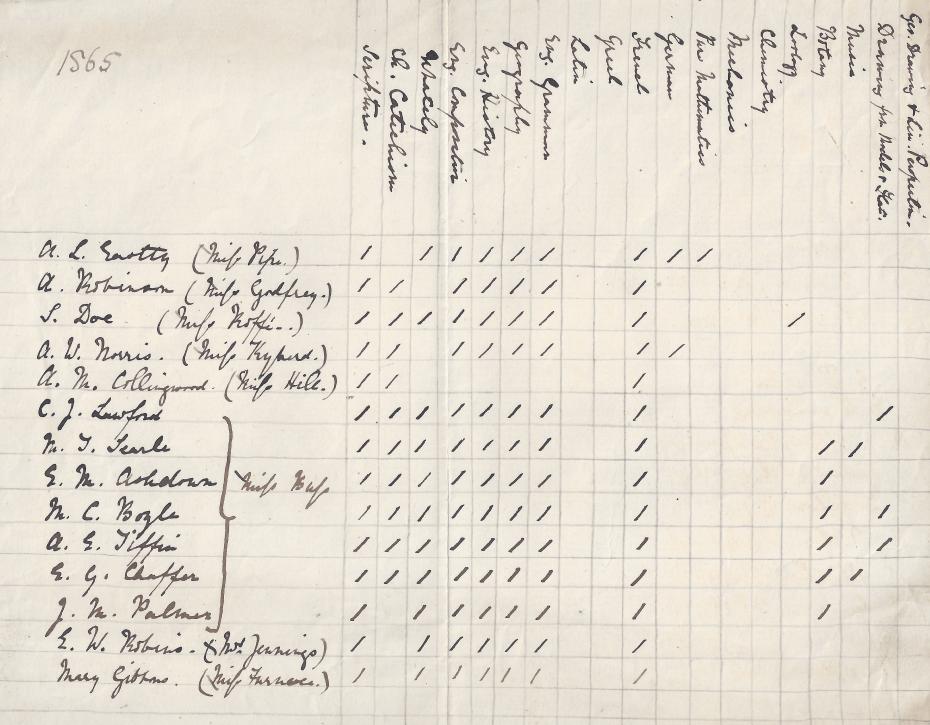 1865
Scripture.
Ch. Catechism
Whately
Eng. Composition
Eng. History
Geography
Eng. Grammar
Latin
Greek
French
German
Pure Mathematics
Mechanics
Chemistry
Zoology.
Botany
Music
Drawing from Models & Flat.
Geo. Drawing & Lin. Perspective.
A. L. Eastty (Miss Pipe.) / / / / / / / / /
A. Robinson (Miss Godfrey.) / / / / / / /
S. Doe (Miss / / / / / / / / /
A. W. Norris. (Miss / / / / / / / /
A. M. Collingwood. (Miss Hill.) / / /
C. J. Lawford / / / / / / / / /
M. T. Searle / / / / / / / / / /
E. M. Ashdown Miss Buss / / / / / / / / /
M. C. Boyle / / / / / / / / / /
A. E. Tiffin / / / / / / / / / /
E. G. Chaffer / / / / / / / / / /
J. M. Palmer / / / / / / / /
E. W. Robins. (Mrs Jennings) / / / / / / /
Mary Gibbons. (Miss Furness.) / / / / / / /